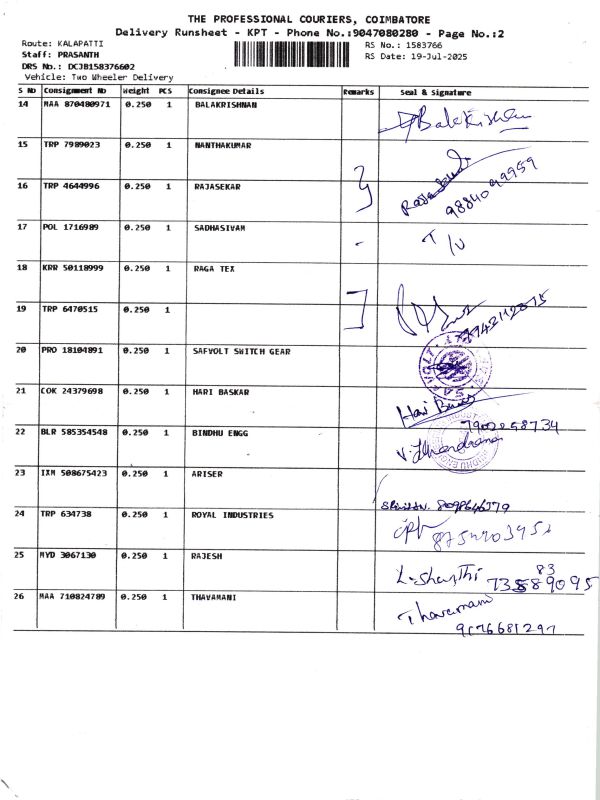 THE PROFESSIONAL COURIERS, COIMBATORE
Delivery Runsheet - KPT - Phone No.:9047080280 - Page No.:2
Route: KALAPATTI
RS No.: 1583766
Staff: PRASANTH
RS Date: 19-Jul-2025
DRS No.: DCJB158376602
Vehicle: Two Wheeler Delivery
S No Consignment No Weight PCS Consignee Details Remarks Seal & Signature
14 MAA 870480971 0.250 1 BALAKRISHNAN Balakrishnan
15 TRP 7989023 0.250 1 NANTHAKUMAR
16 TRP 4644996 0.250 1 RAJASEKAR 9884099959
17 POL 1716989 0.250 1 SADHASIVAM
18 KRR 50118999 0.250 1 RAGA TEX
19 TRP 6470515 0.250 1
20 PRO 18104891 0.250 1 SAFVOLT SWITCH GEAR
21 COK 24379698 0.250 1 HARI BASKAR Hari
22 BLR 585354548 0.250 1 BINDHU ENGG
23 IXM 508675423 0.250 1 ARISER 8098646379
24 TRP 634738 0.250 1 ROYAL INDUSTRIES
25 MYD 3067130 0.250 1 RAJESH L. Shanthi
26 MAA 710824789 0.250 1 THAVAMANI Thavamani
9176681297